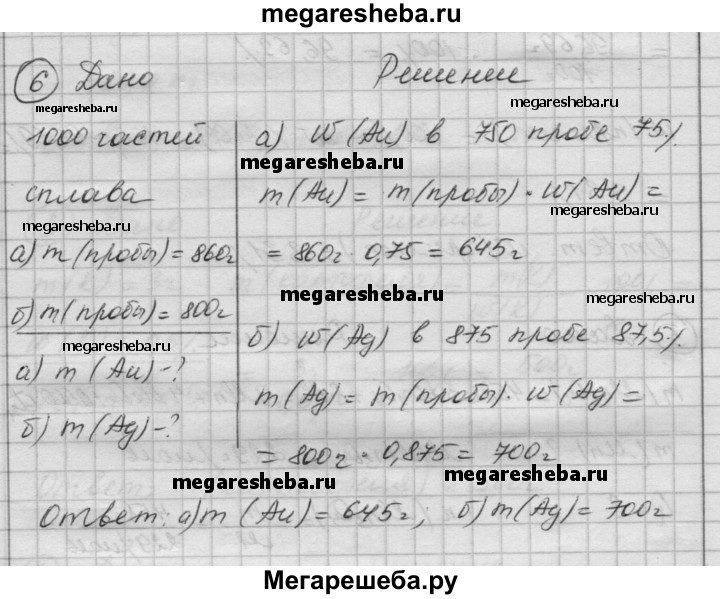 megaresheba.ru
6 Дано Решение
megaresheba.ru megaresheba.ru
1000 частей а) W (Au) в 750 пробе 75%
megaresheba.ru
сплава m (Au) = m (пробы) · W (Au) =
megaresheba.ru megaresheba.ru
а) m (пробы) = 860г = 860г · 0,75 = 645г
megaresheba.ru megaresheba.ru
б) m (пробы) = 800г б) W (Ag) в 875 пробе 87,5%
megaresheba.ru
а) m (Au) - ? m (Ag) = m (пробы) · W (Ag) =
megaresheba.ru
б) m (Ag) - ? = 800г · 0,875 = 700г
megaresheba.ru megaresheba.ru
Ответ: а) m (Au) = 645г, б) m (Ag) = 700г
Мегарешеба.ру